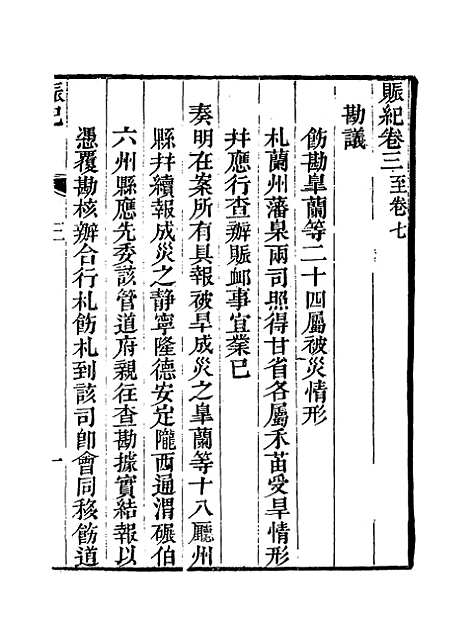 賑紀卷三至卷七
勘議
飭勘臯蘭等二十四屬被災情形
札蘭州藩臬兩司照得甘省各屬禾苗受旱情形
幷應行查辦賑䘏事宜業已
奏明在案所有具報被旱成災之臯蘭等十八廳州
縣幷續報成災之靜寧隆德安定隴西通渭碾伯
六州縣應先委該管道府親往查勘據實結報以
憑覆勘核辦合行札飭札到該司卽會同移飭道
賑紀
三
一